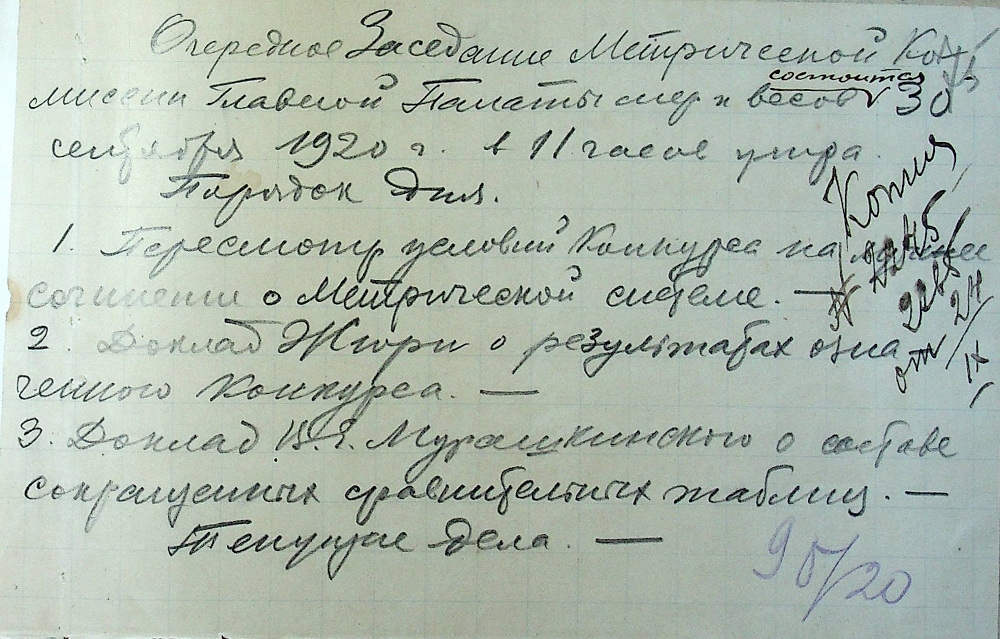 Очередное Заседание Метрической Ко-
состоится
миссии Главной Палаты мер и весов 30
сентября 1920 г. в 11 часов утра.
Порядок Дня.
1. Пересмотр условий Конкурса на лучшее
сочинение о Метрической системе. —
2. Доклад Жюри о результатах озна
ченного Конкурса. —
3. Доклад В.Е. Мурашкинского о составе
сокращенных сравнительных таблиц. —
Текущие дела. —
Копия
от 24/IX
90/20